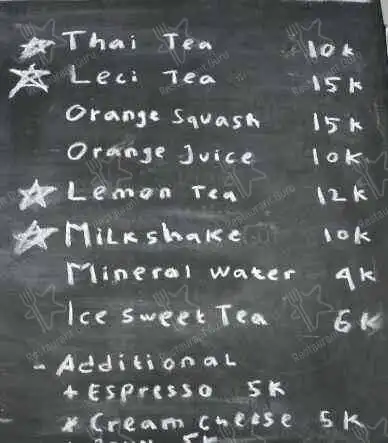 Thai Tea 10k
Leci Tea 15k
Orange Squash 15k
Orange Juice 10k
Lemon Tea 12k
Milkshake 10k
Mineral water 4k
Ice sweet Tea 6k
- Additional
+ Espresso 5k
* Cream cheese 5k
5k